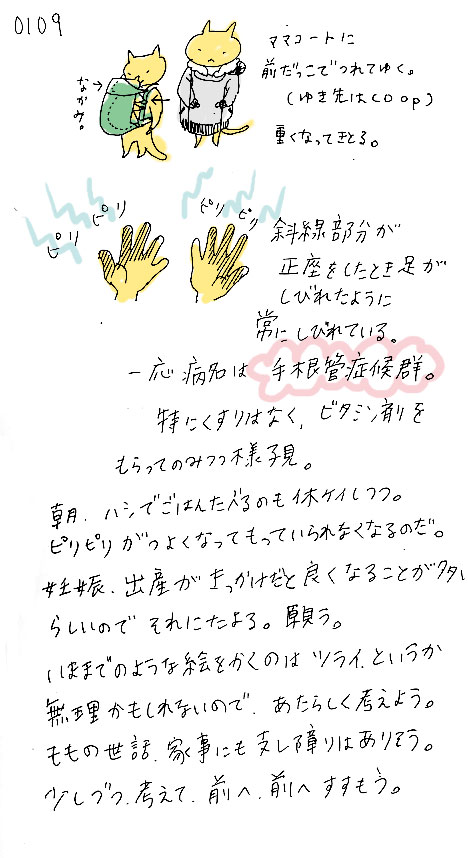 0109
ママコートに
前だっこでつれてゆく。
(ゆき先はCOOP)
重くなってきとる。
なかみ。
ピリ
ピリ
ピリ
ピリ
斜線部分が
正座をしたとき足が
しびれたように
常にしびれている。
一応病名は 手根管症候群。
特にくすりはなく、ビタミン剤を
もらってのみつつ様子見。
朝、ハシでごはんたべるのも休ケイしつつ。
ピリピリがつよくなってもっていられなくなるのだ。
妊娠、出産がきっかけだと良くなることが多い
らしいので それにたよる。願う。
いままでのような絵をかくのは ツライ、というか
無理かもしれないので、あたらしく考えよう。
ももの世話、家事にも支し障りはありそう。
少しづつ、考えて、前へ、前へ すすもう。